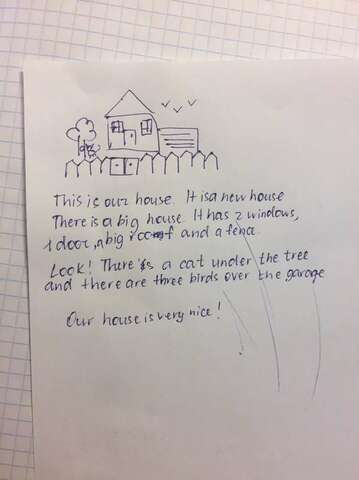 This is our house. It is a new house
There is a big house. It has 2 windows,
1 door, a big roof and a fence.
Look! There's a cat under the tree
and there are three birds over the garage
Our house is very nice!